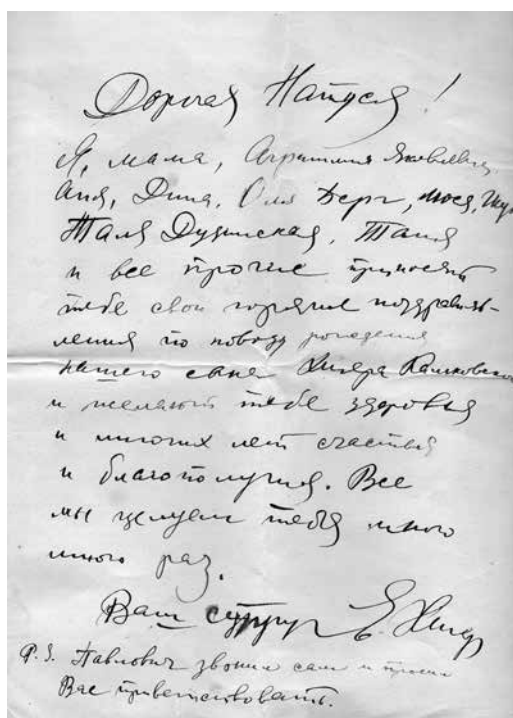 Дорогая Натуся!
Я, мама, Агриппина Яковлевна,
Аня, Дина, Оля Берг, Мося,
Таля Дудинская, Таня
и все прочие приносят
тебе свои горячие поздравле-
ления по поводу рождения
нашего сына
и желают тебе здоровья
и многих лет счастья
и благополучия. Все
мы целуем тебя много
много раз.
Ваш супруг
P.S. Павлович звонил сам и просил
Вас приветствовать.